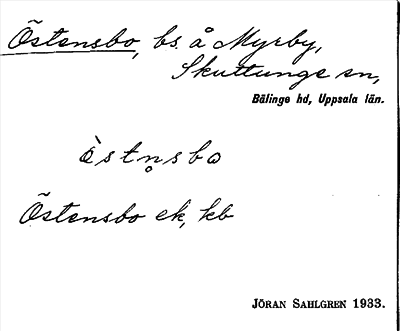 Östensbo, bs. å Myrby,
Skuttunge sn,
Bälinge hd, Uppsala län.
ö̀stn̥sbω
Östensbo ek, kb
JÖRAN SAHLGREN 1933.